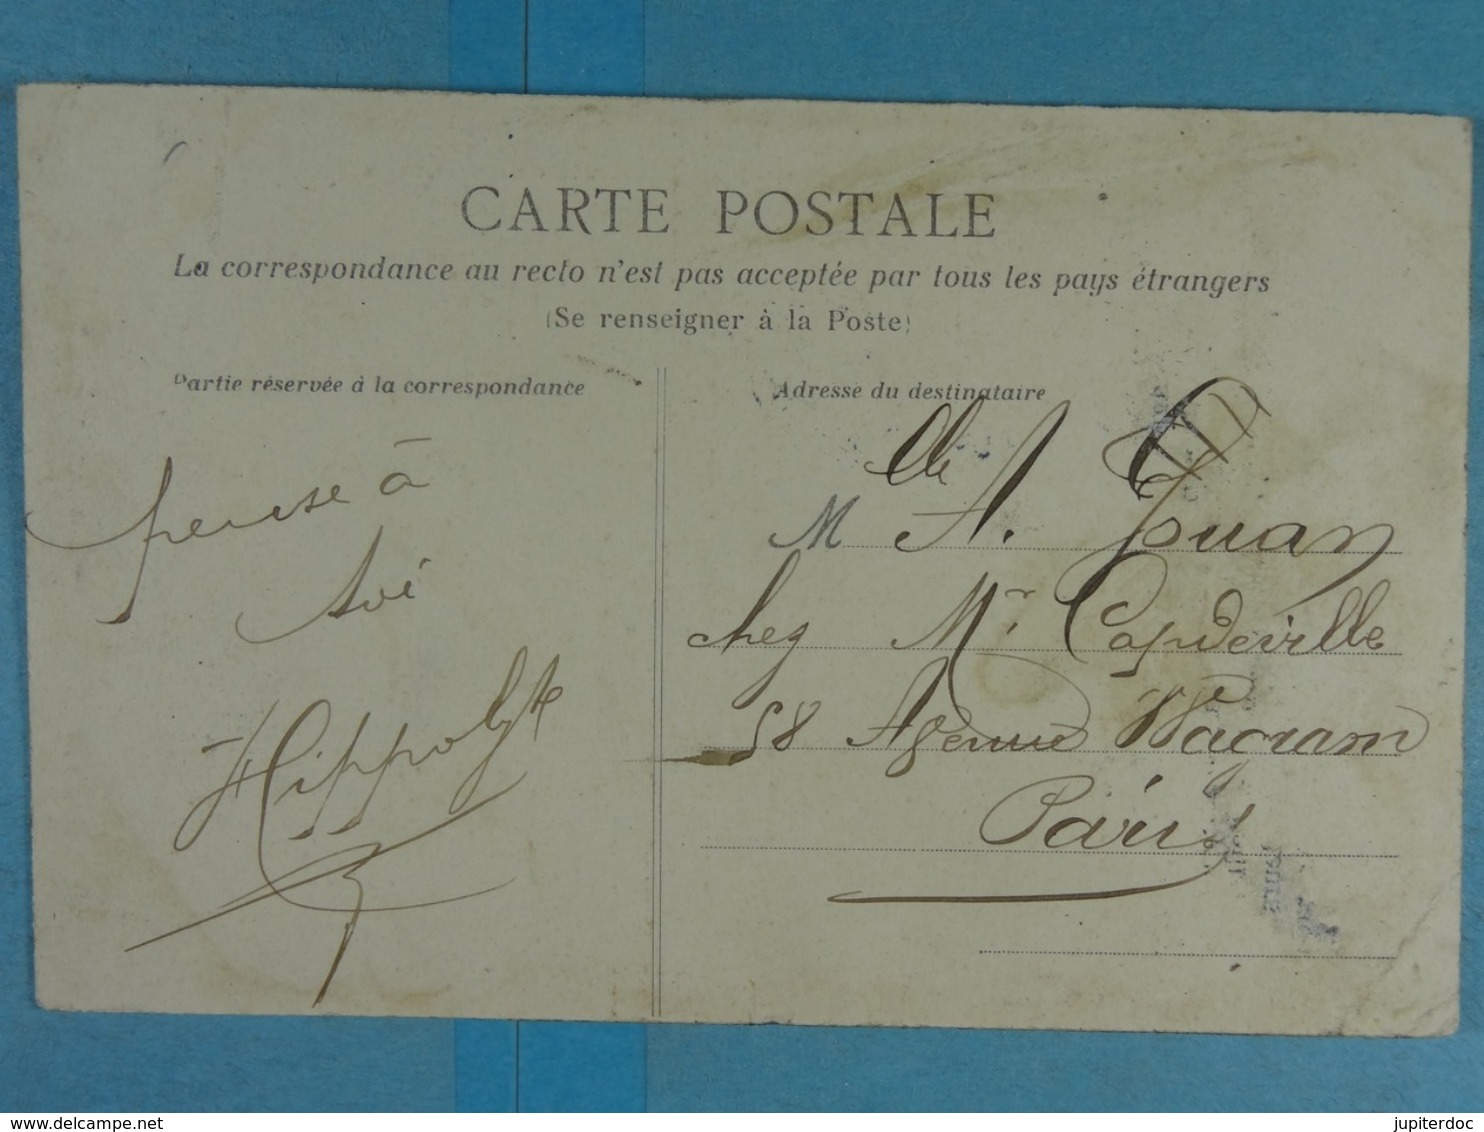 CARTE POSTALE
La correspondance au recto n'est pas acceptée par tous les pays étrangers
(Se renseigner à la Poste)
Partie réservée à la correspondance
Adresse du destinataire
pense à
toi
Hippolyte
Mlle A. Jouan
chez Mr. Capdeville
58 Avenue Wagram
Paris
delcampe.net
jupiterdoc